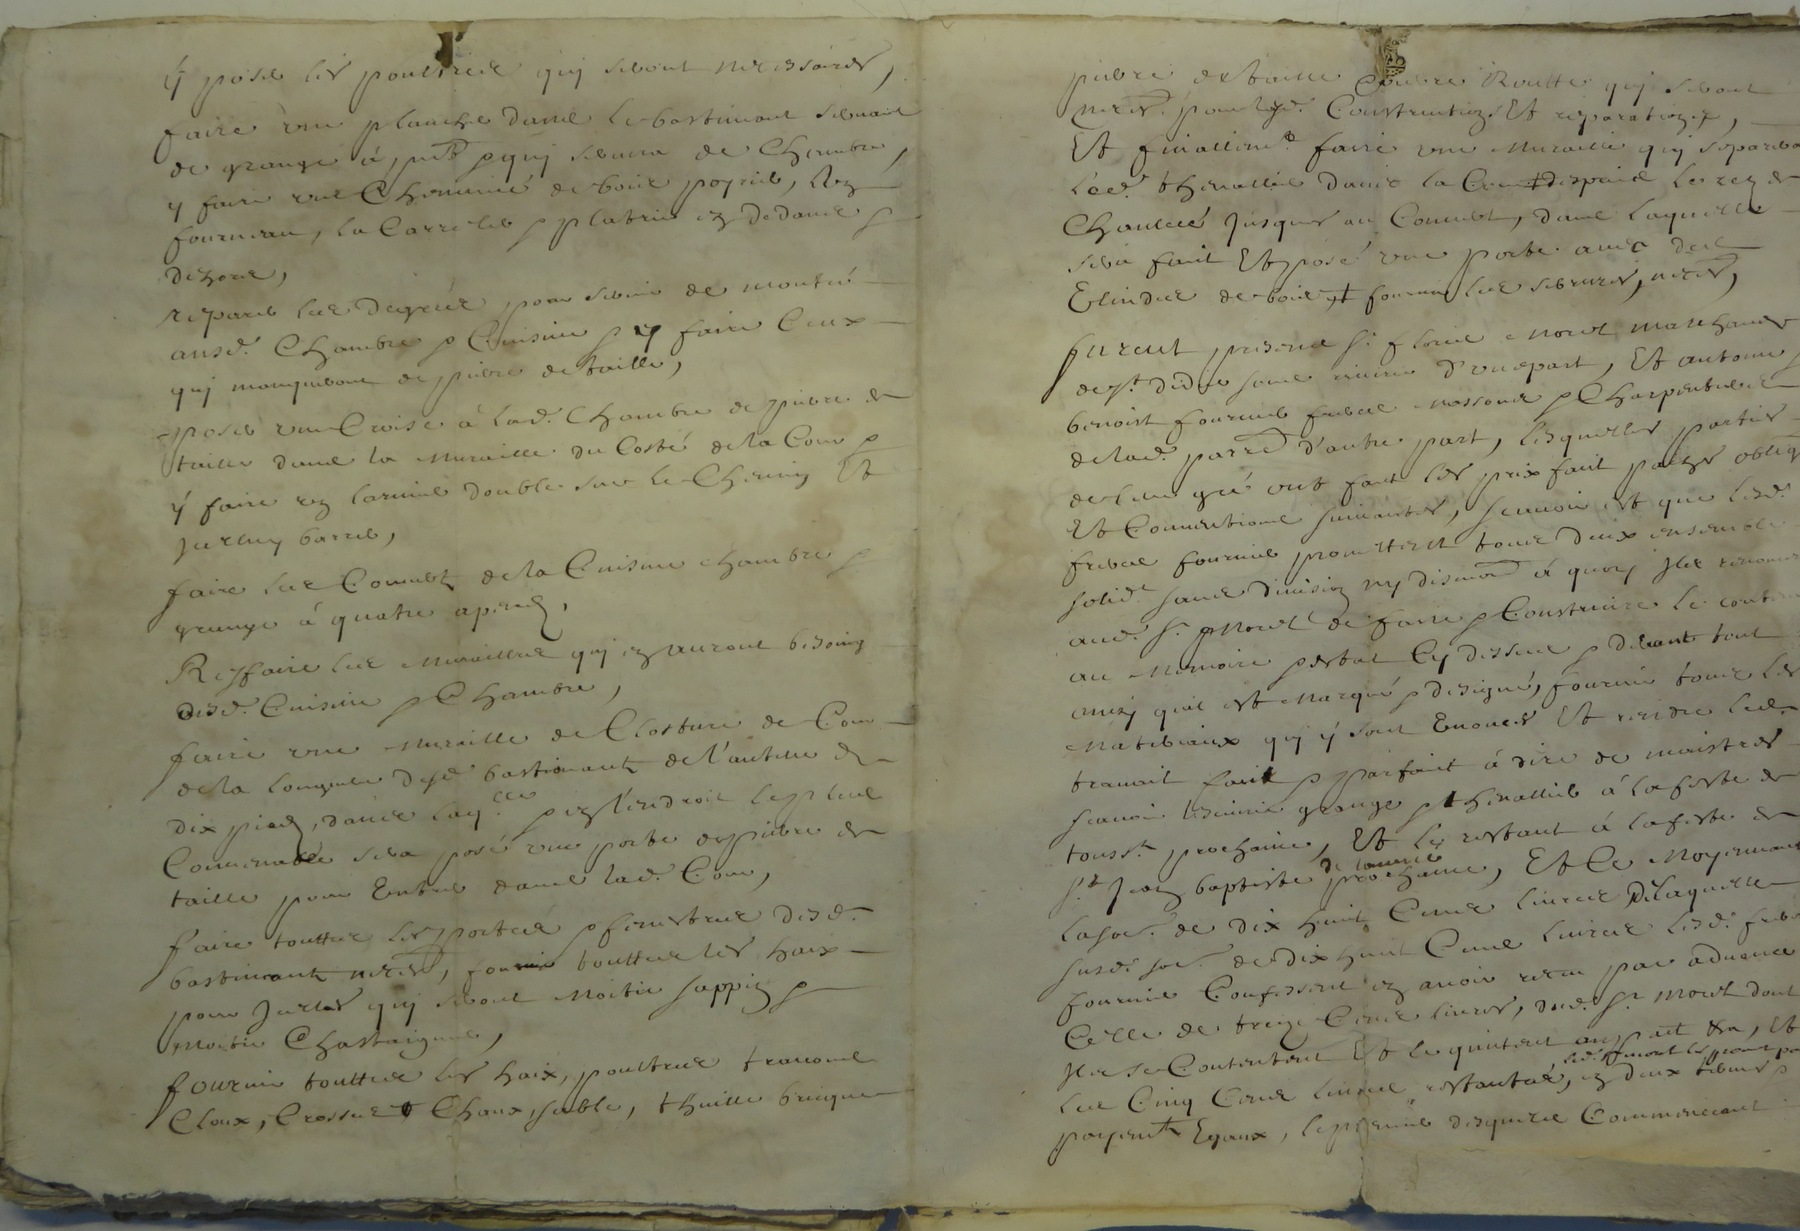 y poser les poultres qui seront necessaires,
faire une planche dans le bastiment servant
de grange à pnt & qui servira de Chambre,
y faire une Cheminée de bois
fourneau, la Carreler & platrir en dedans &
dehors,
reparer les degrées pour servir de montée
ausd. Chambre & Cuisine & y faire Ceux
qui manqueront de pierre de taille,
poser une Croisé à lad. Chambre de pierre de
taille dans la Muraille du Costé de la Cour &
y faire un larmier double sur le Chemin Et
Iceluy barrer,
faire les Couverts de la Cuisine chambre &
grange à quatre
Reffaire les Murailles qui en auront besoing
desd. Cuisine & Chambre,
faire une Muraille de Closture de Cour
de la longueur desd. bastimants de l'auteur de
dix pieds, dans laq.lle & en l'endroit le plus
Convenable sera posé une porte de pierre de
taille pour Entrer dans lad. Cour,
faire touttes les portes & fenestres desd.
bastimants neces.res, fournir touttes les haix
pour Icelles qui seront Moitié sappin &
Moitié Chastaigner,
fournir touttes les haix, poultres travons
Cloux, Crosses Chaux, sable, thuille bricque
pierre de taille & autre Routte qui seront
neces.res pour lesd. Construction Et reparations,
Et finallem.t faire une Muraille qui separera
led. thenallier dans la despuis le rez de
Chaussée jusques au Couvert, dans laquelle
sera fait Et posé une porte avec des
de bois, & fournir les serrures neces.res,
furent presens s.r Morel Marchand
de s.t didier sous riviere d'une part, Et antoine &
benoist fournier freres Massons & Charpentiers
de lad. parr.e d'autre part, lesquelles parties
de leur gré ont fait les prix fait pactes oblig
Et Conventions suivantes, scavoir est que lesd.
freres fournier promettent tous deux ensemble
solid.t sans division ny discution à quoy Ils renoncent
aud. s.r Morel de faire & Construire le contenu
au Memoire & estat Cy dessus & devant tout
ainsy quil est Marqué & designé, fournir tous les
Materiaux qui y sont Enoncés Et rendre led.
travail fait & parfait à dire de maistres
scavoir grange & thenallier à la feste de
touss.t prochaine, Et le restant à la feste de
s.t Jean baptiste prochaine, Et Ce Moyennant
de l'année
la so.e de dix huit Cens livres De laquelle
susd. so.e de dix huit Cens livres lesd. freres
fournier Confessent en avoir receu par advance
Celle de treize Cens livres, dud. s.r Morel dont
Ils se Contentent Et le quittent Et
les Cinq Cens livres restantes, en deux termes &
payem.ts Egaux, le premier desquels Commencant